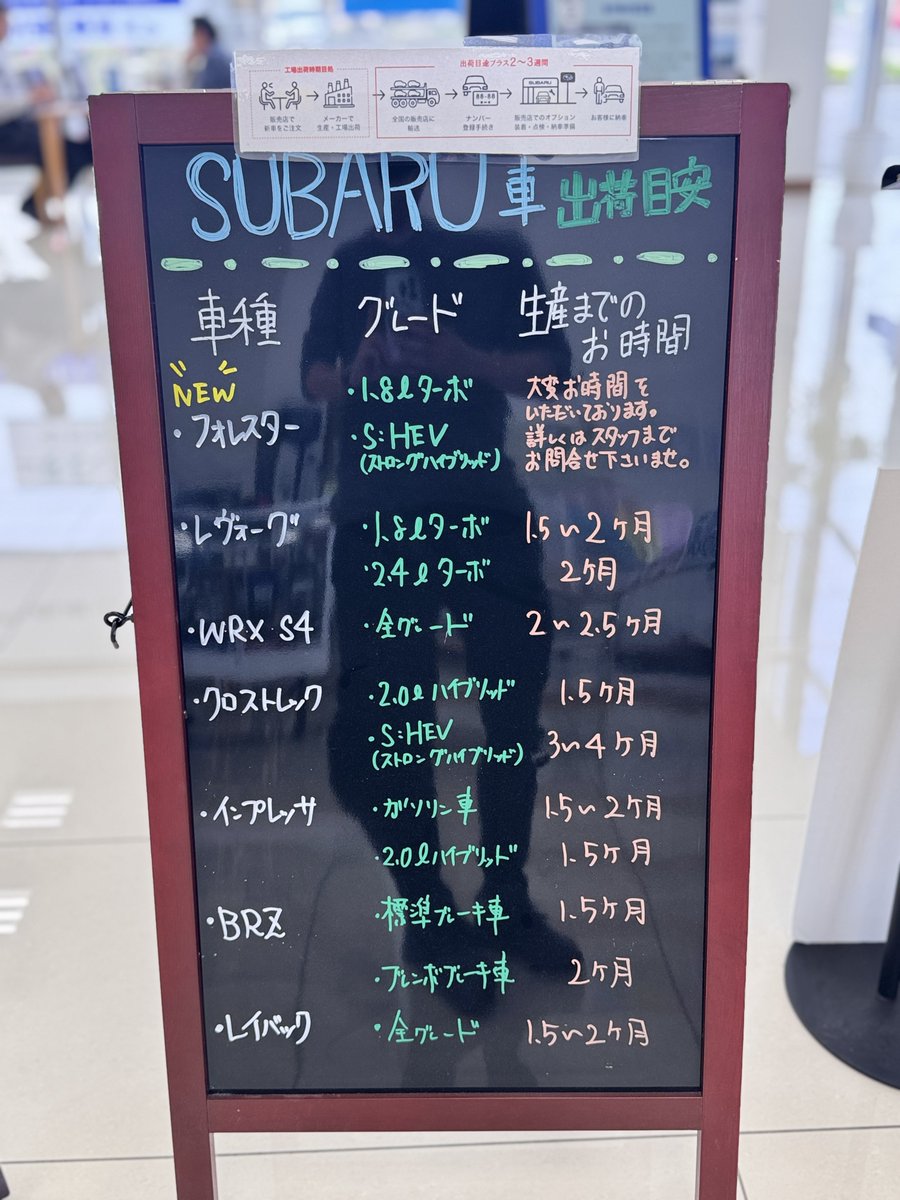 工場出荷時期目処
出荷目途プラス2〜3週間
販売店で
新車をご注文
メーカーで
生産・工場出荷
全国の販売店に
輸送
ナンバー
登録手続き
SUBARU
販売店でのオプション
装着・点検・納車準備
お客様に納車
SUBARU車 出荷目安
車種 グレード 生産までの
お時間
NEW
・フォレスター
・1.8lターボ
・S:HEV
(ストロングハイブリッド)
大変お時間を
いただいております。
詳しくはスタッフまで
お問合せ下さいませ。
・レヴォーグ ・1.8lターボ 1.5〜2ヶ月
・2.4lターボ 2ヶ月
・WRX S4 ・全グレード 2〜2.5ヶ月
・クロストレック ・2.0lハイブリッド 1.5ヶ月
・S:HEV
(ストロングハイブリッド) 3〜4ヶ月
・インプレッサ ・ガソリン車 1.5〜2ヶ月
・2.0lハイブリッド 1.5ヶ月
・BRZ ・標準ブレーキ車 1.5ヶ月
・ブレンボブレーキ車 2ヶ月
・レイバック ・全グレード 1.5〜2ヶ月